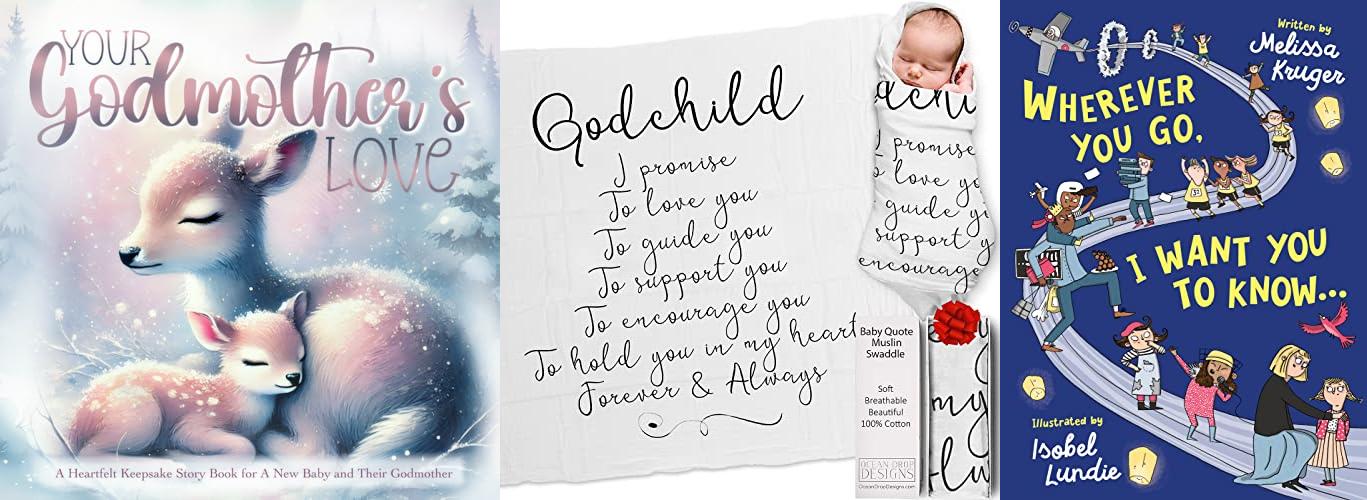 YOUR
Godmother's
LOVE
A Heartfelt Keepsake Story Book for A New Baby and Their Godmother
Godchild
I promise
To love you
To guide you
To support you
To encourage you
To hold you in my heart
Forever & Always
I promise
love yo
guide yo
support y
encourage
Baby Quote
Muslin
Swaddle
Soft
Breathable
Beautiful
100% Cotton
OCEAN DROP
DESIGNS
OceanDropDesigns.com
my
Written by
Melissa
Kruger
WHEREVER
YOU GO,
I WANT YOU
TO KNOW...
Illustrated by
Isobel
Lundie